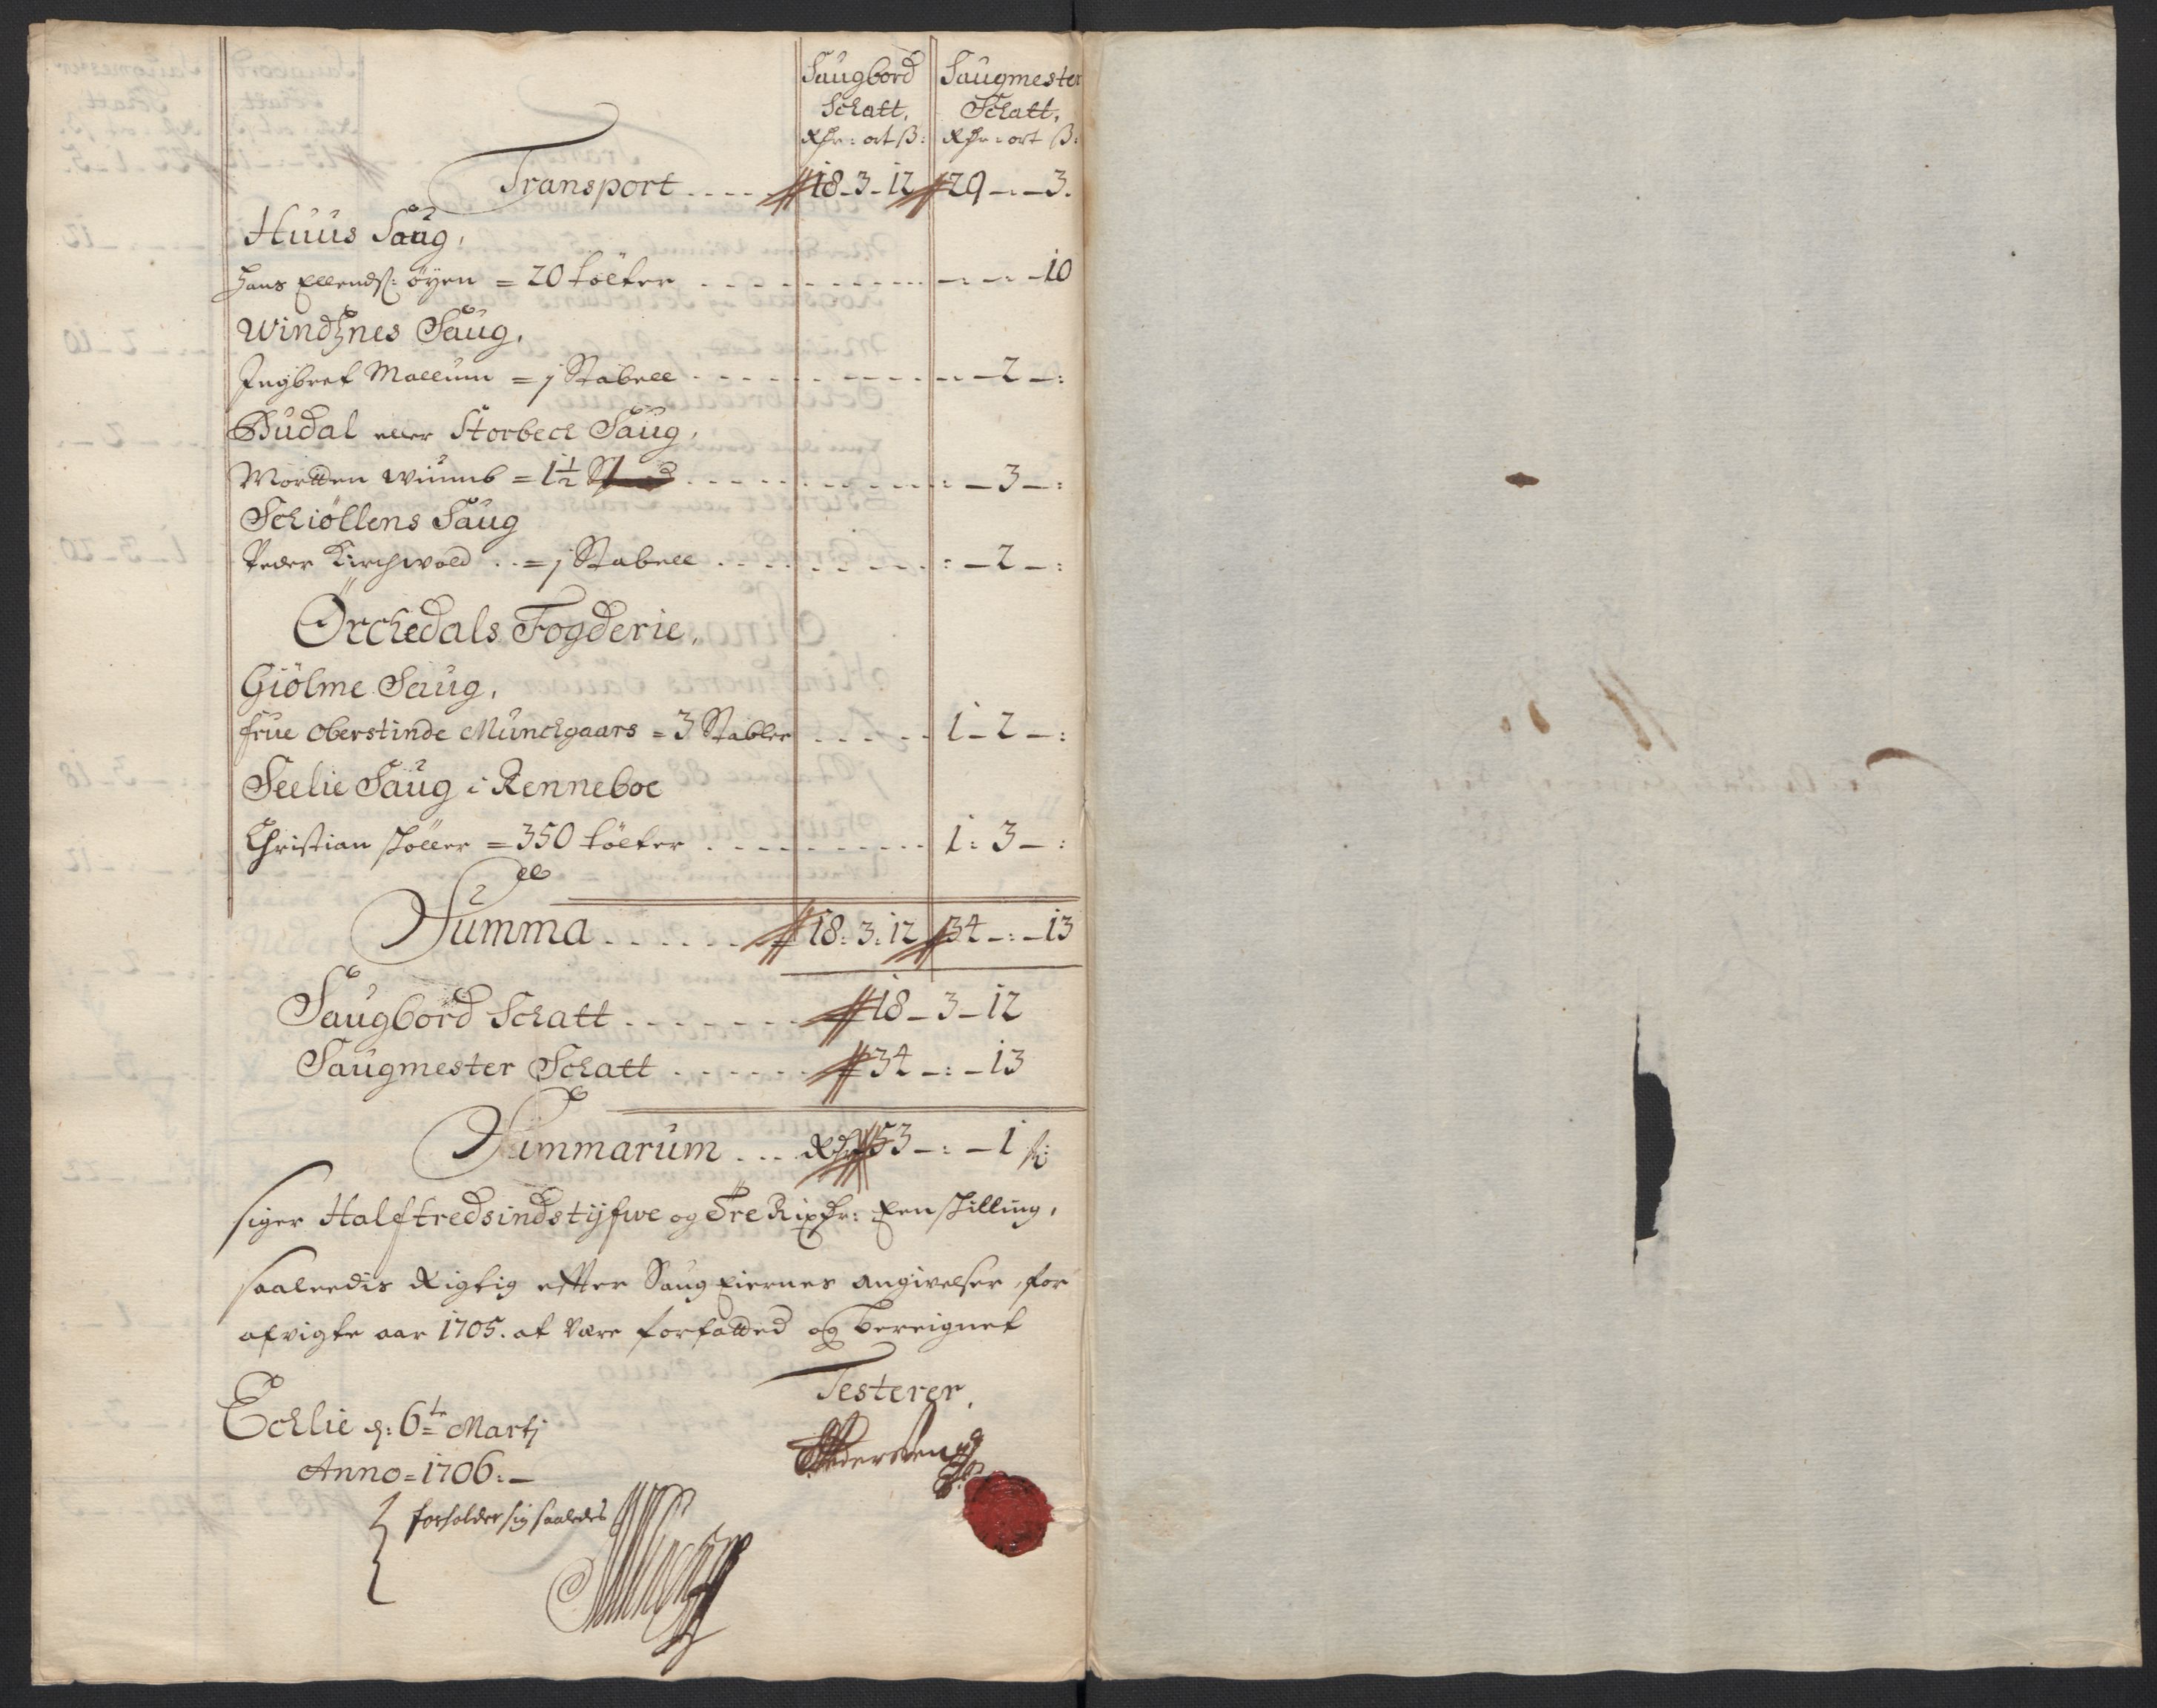 Saugbord Saugmester
Schatt, Schatt,
Rdr: ort ß: Rdr: ort ß:
Transport . . . . 18-3-12 29-:-3.
Huus Saug,
Hans Ellendß: öyen = 20 tölter . . . . -:-:-10
Windsnes Saug,
Ingbret Mollum = j Stabell . . . . -2-:
Budal eller Storbeck Saug,
Mortten Wiumb = 1½ . . . . :-3-:
Schiöllens Saug
Peder Kirchwold . . = j Stabell . . . . :-2-:
Örckedals Fogderie,
Giölme Saug,
Frue Oberstinde Munchgaars = 3 Stabler . . . . 1-2-:
Seelie Saug i Renneboe
Christian Schöller = 350 tölter . . . . 1:3-:
Summa . . . . . . 18:3:12 34-:-13
Saugbord Schatt . . . . . . . 18-3-12
Saugmester Schatt . . . . . . 34-:-13
Summarum . . . Rdr 53-:-1 ß:
siger Halftredsindstijfwe og Tre Rixdr: Een skilling,
saaledis Rigtig efter Saug Eiernes angivelser, for
afvigte aar 1705. at være forfatted og bereignet
Testerer,
Ecklie d: 6te Martj
Anno = 1706:-
forholder sig saaledes